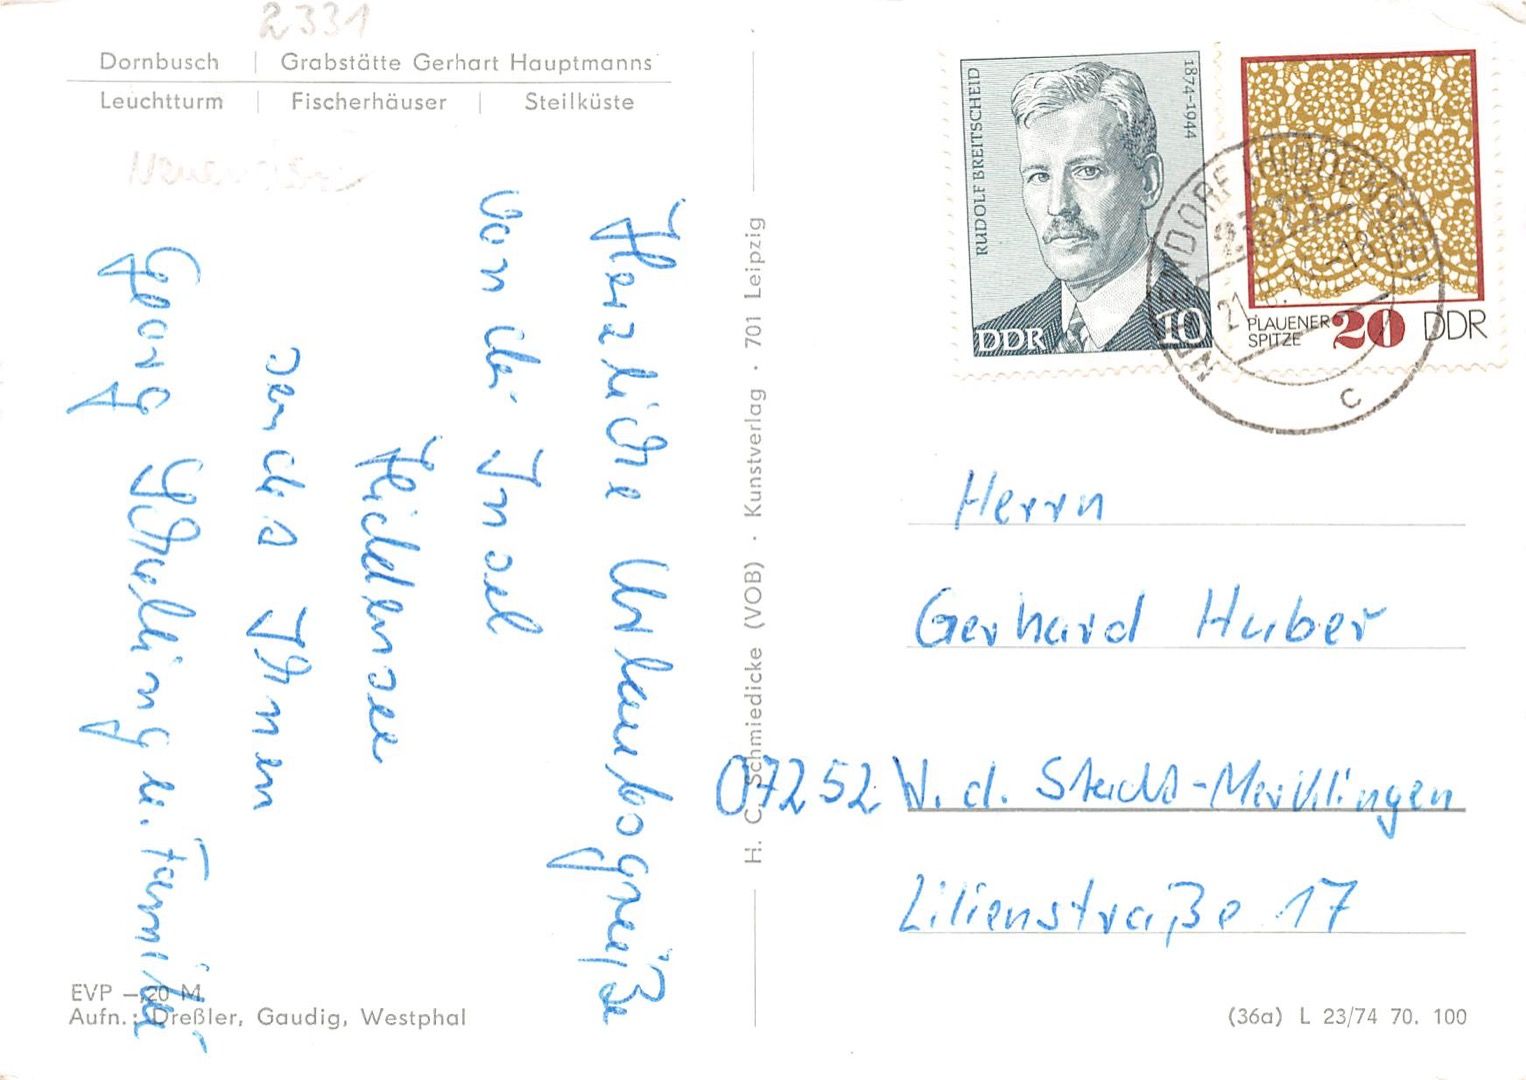 2331
Dornbusch | Grabstätte Gerhart Hauptmanns
Leuchtturm | Fischerhäuser | Steilküste
Herzliche Urlaubsgrüße
von der Insel
Hiddensee
sendet Ihnen
Georg Schelling u. Familie
EVP —,20 M
Aufn.: Dreßler, Gaudig, Westphal
H. C. Schmiedicke (VOB) · Kunstverlag · 701 Leipzig
RUDOLF BREITSCHEID
1874-1944
DDR 10
PLAUENER
SPITZE
20 DDR
HIDDENSEE
c
Herrn
Gerhard Huber
07252 W. d. Stadt-Merklingen
Lilienstraße 17
(36a) L 23/74 70. 100